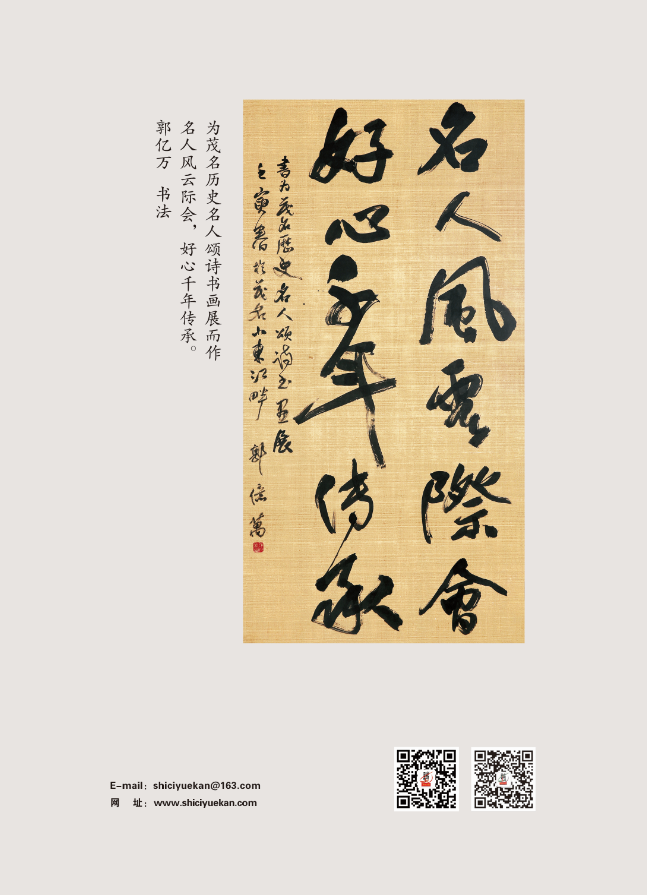 名人風雲際會
好心千年传承
書为茂名歷史名人颂詩书画展
壬寅春於茂名小東江畔 郭億萬
为茂名历史名人颂诗书画展而作
名人风云际会，好心千年传承。
郭亿万 书法
E-mail：shiciyuekan@163.com
网 址：www.shiciyuekan.com